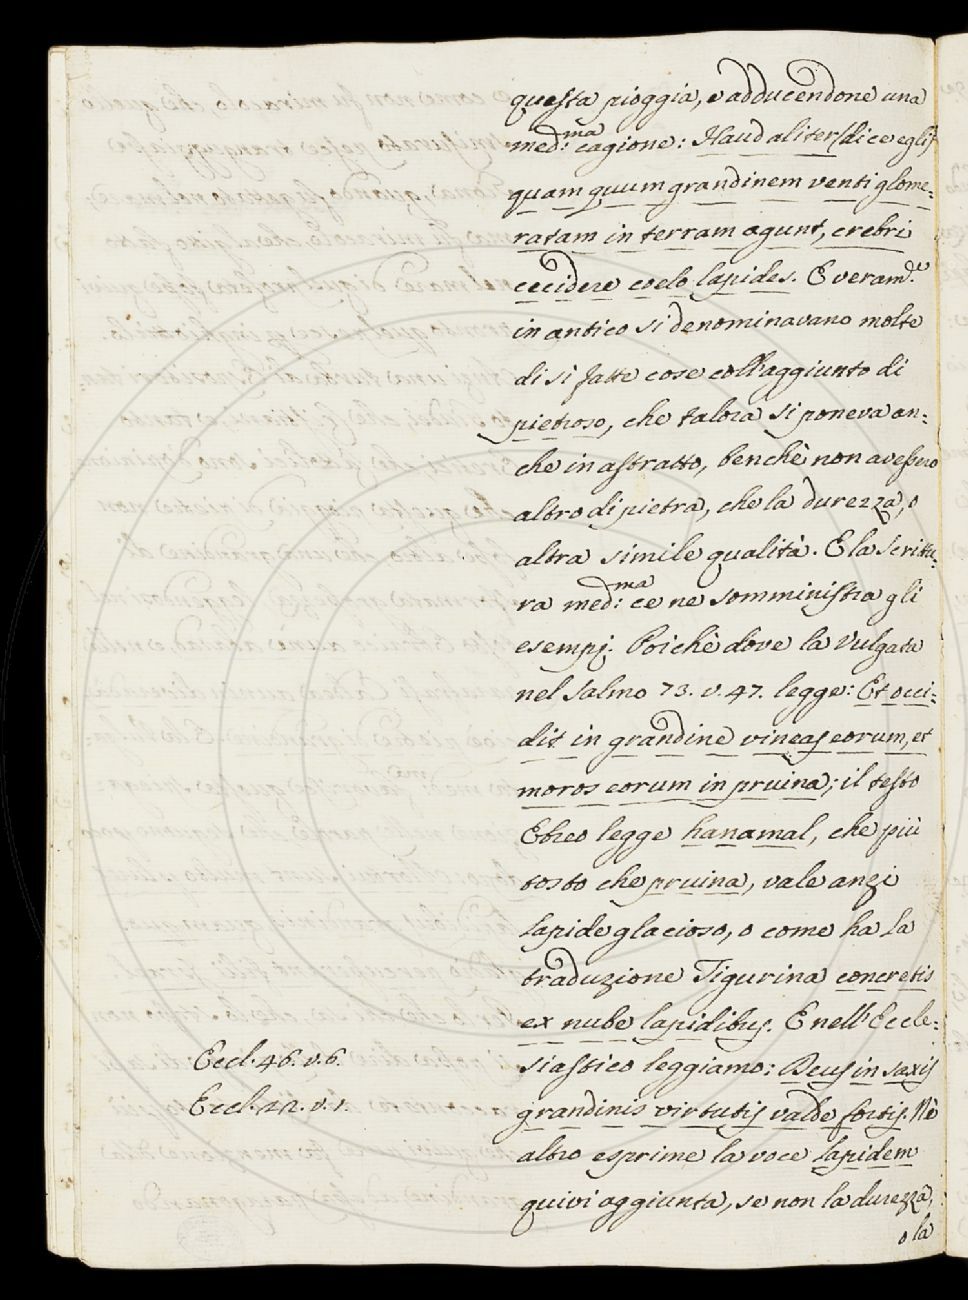 questa pioggia, e adducendone una
med:ma cagione: Haud aliter (dice egli)
quam quum grandinem venti glome-
ratam in terram agunt, crebri
cecidere coelo lapides. E veram.te
in antico si denominavano molte
di si fatte cose coll'aggiunto di
pietroso, che talora si poneva an-
che in astratto, benchè non avessero
altro di pietra, che la durezza, o
altra simile qualità. E la Scrittu-
ra med:ma ce ne somministra gli
esempj. Poichè dove la Vulgata
nel Salmo 73. v. 47. legge: Et occi-
dit in grandine vineas eorum, et
moros eorum in pruina; il testo
Ebreo legge hanamal, che più
tosto che pruina, vale anzi
lapide glacioso, o come ha la
traduzione Tigurina concretis
ex nube lapidibus. E nell'Eccle-
siastico leggiamo: Deus in saxis
grandinis virtutis valde fortis. Nè
altro esprime la voce lapidem
quivi aggiunta, se non la durezza,
o la
Eccl. 46. v. 6.